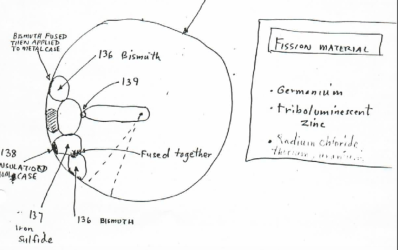 BISMUTH FUSED
THEN APPLIED
TO METAL CASE
136 Bismuth
139
Fused together
138
137
Iron
Sulfide
136 BISMUTH
FISSION MATERIAL
• Germanium
• Triboluminescent
zinc
• Sodium chloride